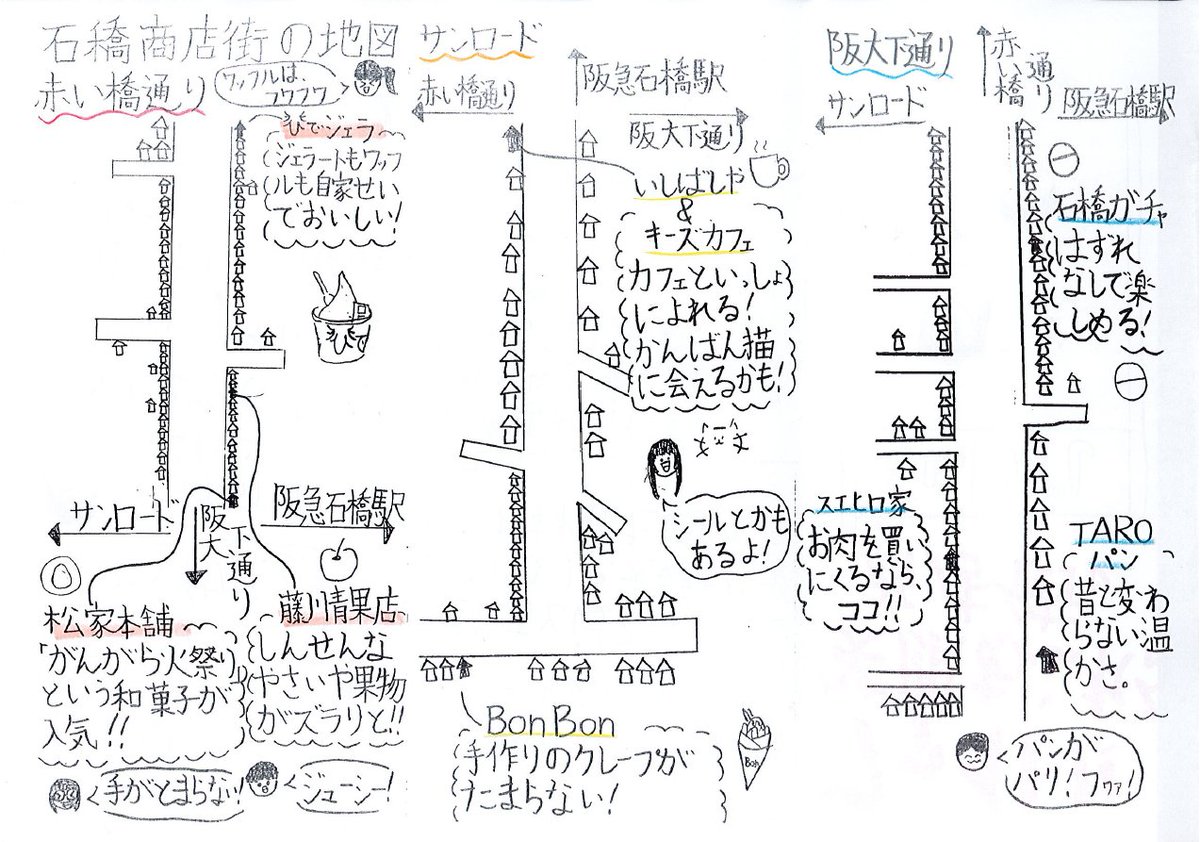 石橋商店街の地図
赤い橋通り
ワッフルは、
フワフワ
ぴでジェラ
ジェラートもワッフ
ルも自家せい
でおいしい!
ぴで
サンロード
阪大下通り
阪急石橋駅
松家本舗
「がんがら火祭り」
という和菓子が
入気!!
手がとまらない!
藤川青果店
しんせんな
やさいや果物
がズラリと!!
ジューシー!
サンロード
赤い橋通り
阪急石橋駅
阪大下通り
いしばしや
&
キーズカフェ
カフェといっしょ
によれる!
かんばん猫
に会えるかも!
シールとかも
あるよ!
BonBon
手作りのクレープが
たまらない!
Bon
阪大下通り
サンロード
赤い橋通り
阪急石橋駅
石橋ガチャ
はずれ
なしで楽
しめる!
スエヒロ家
お肉を買い
にくるなら、
ココ!!
TARO
パン
昔と変わ
らない温
かさ。
パンが
パリ!フワァ!